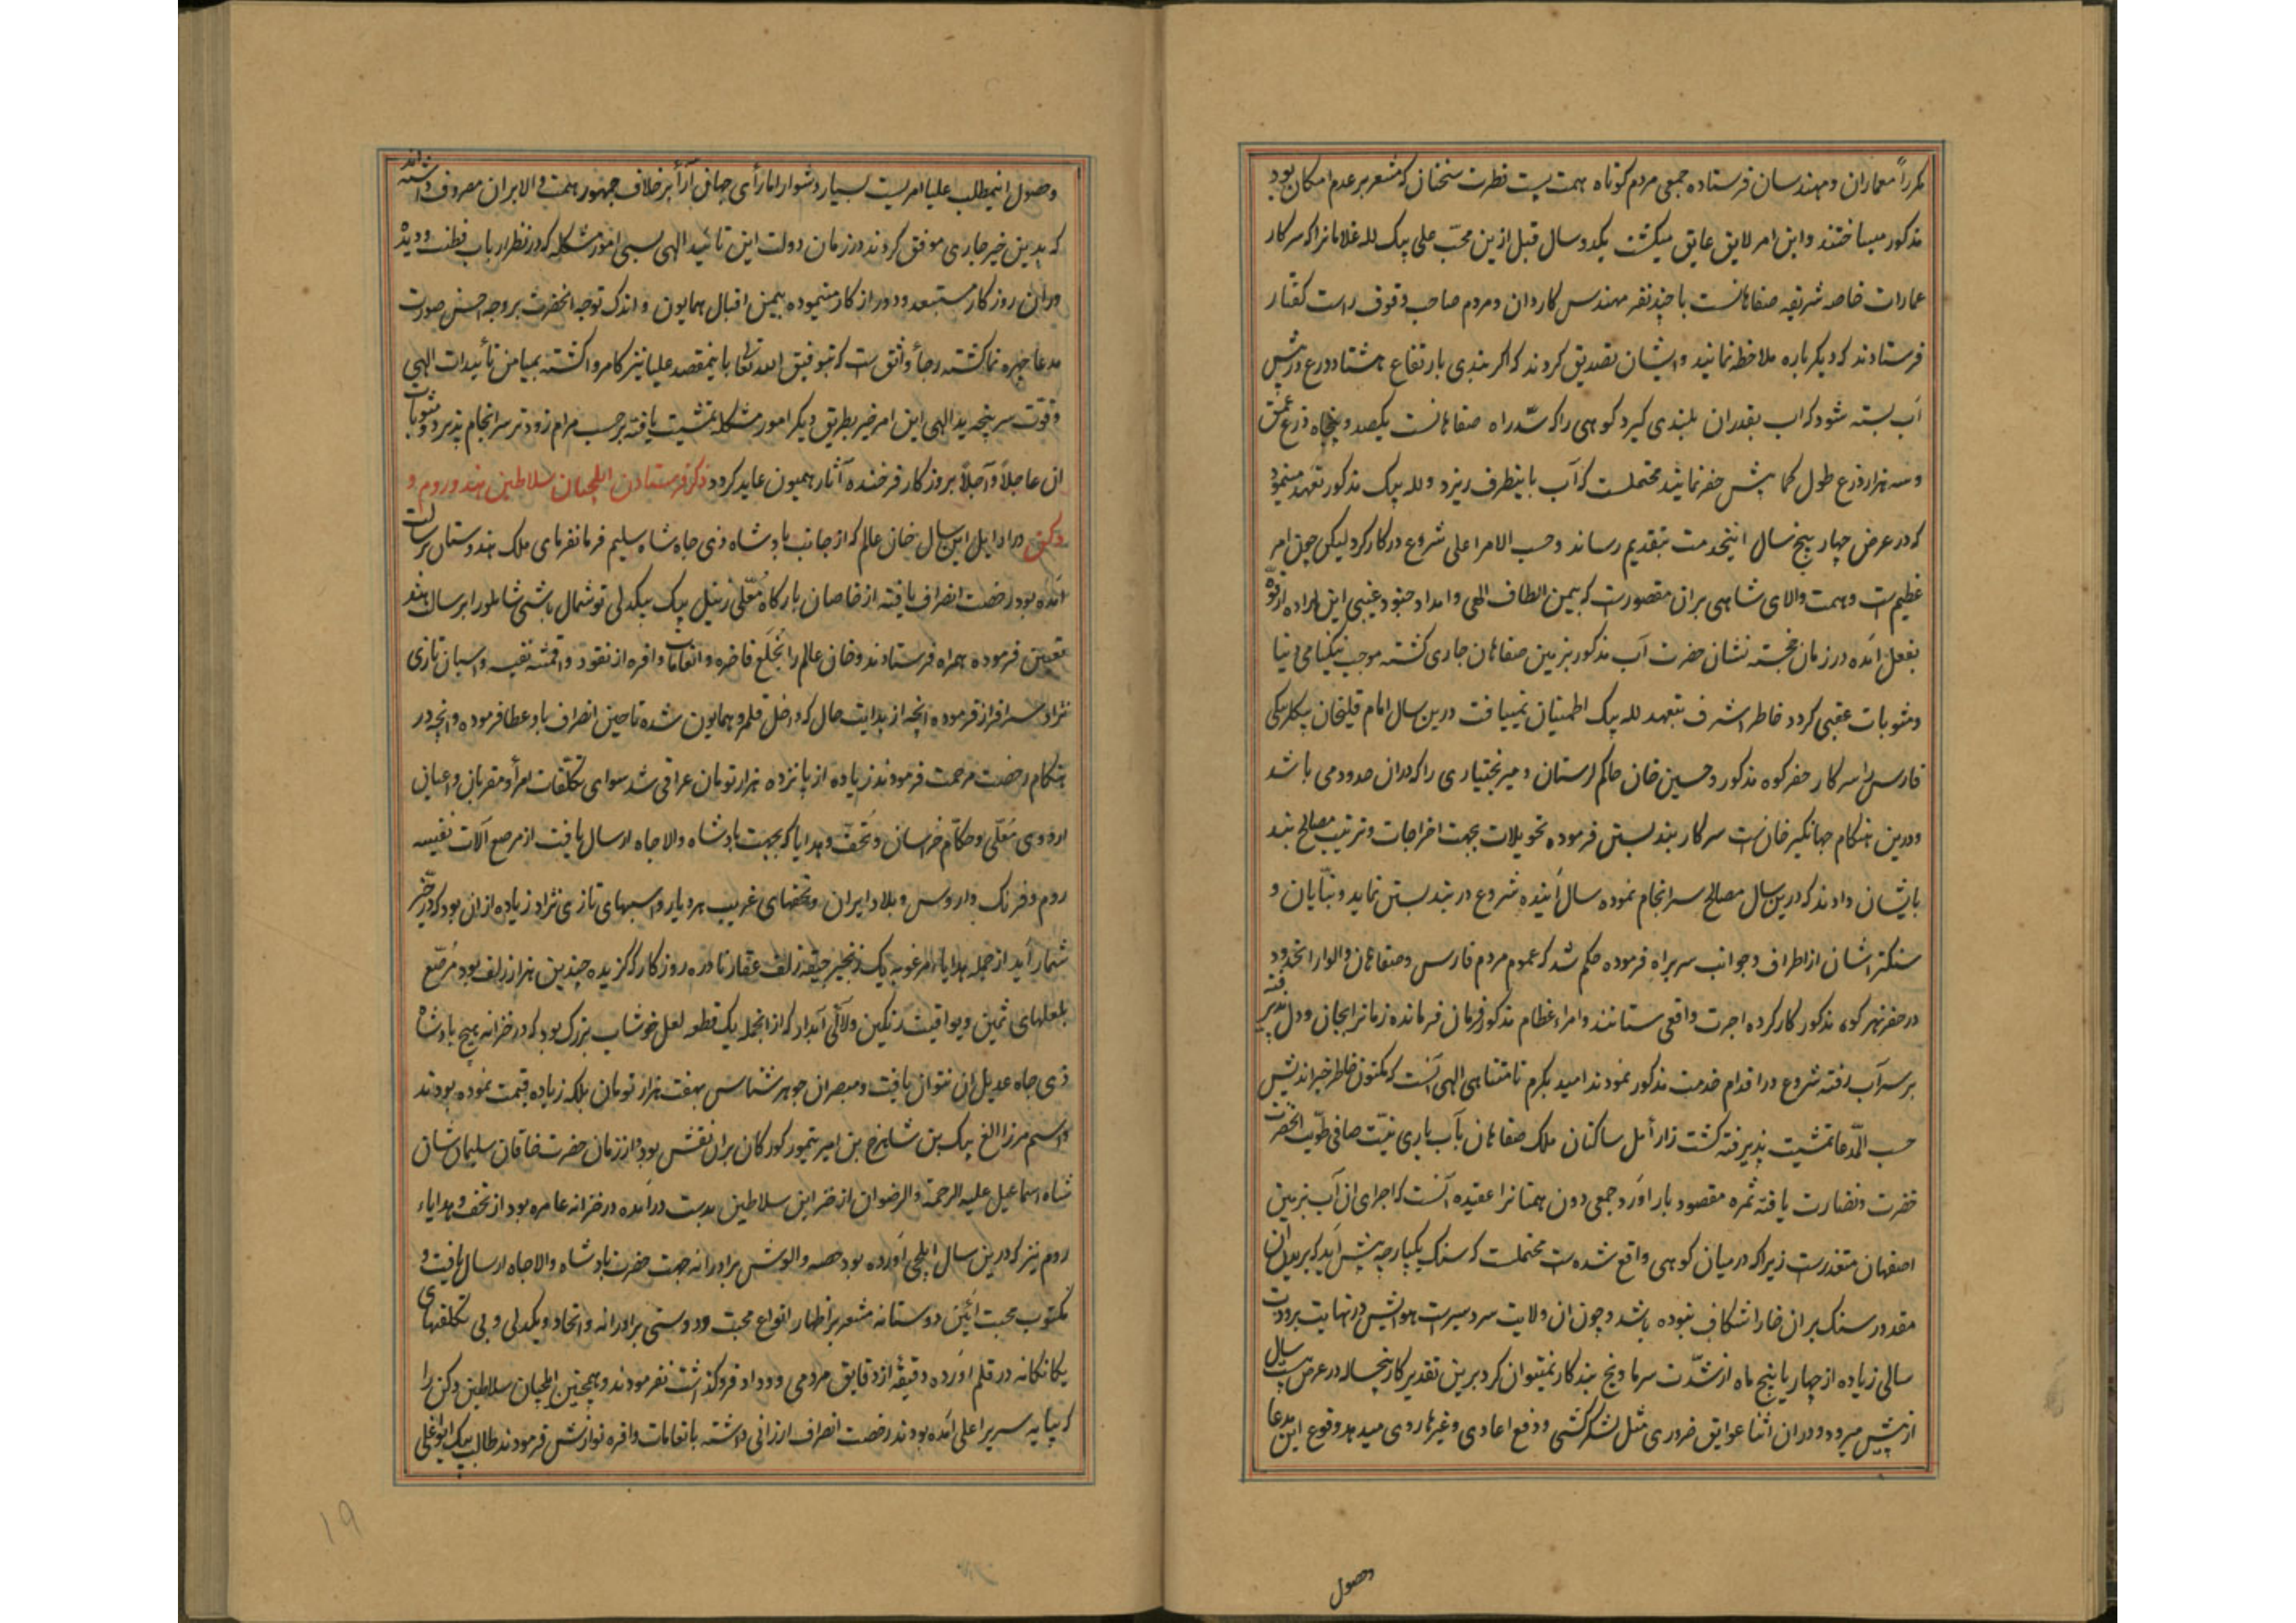 مکرراً معماران و مهندسان فرستاده جمعی مردم کوتاه همت پست فطرت سخنان که مشعر بر عدم امکان بود
مذکور میساختند و این امر لایق عایق میکشت یکدو سال قبل ازین محب علی بیک لله غلامانرا که سرکار
عمارات خاصه شریفه صفاهانست با چند نفر مهندس کاردان و مردم صاحب وقوف راست کفتار
فرستادند که دیکر باره ملاحظه نمانید و ایشان تصدیق کردند که اکر بندی بارتفاع هشتاد ذرع در پیش
آب بسته شود که اب بقدران بلندی کیرد کوهی را که سدّ راه صفاهانست یکصد و پنجاه ذرع عمق
و سه هزار ذرع طول کما بیش حفر نمانید محتملست که آب باینطرف ریزد و لله بیک مذکور تعهد مینمود
که در عرض چهار پنج سال اینخدمت بتقدیم رساند و حسب الامر اعلی شروع در کار کرد لیکن چون امر
عظیم است و همت والای شاهی بران مقصورست که بیمن الطاف الهی و امداد جنود غیبی این اراده از قوّه
بفعل آمده در زمان خجسته نشان حضرت آب مذکور بزمین صفاهان جاری کشته موجب نیکنامی دنیا
و مثوبات عقبی کردد خاطر اشرف بتعهد لله بیک اطمینان نمییافت درین سال امام قلیخان بیکلربیکی
فارس را سرکار حفر کوه مذکور و حسین خان حاکم لرستان و میر بختیاری را که دران حدود می باشد
و درین هنکام جهانکیر خان است سرکار بند بستن فرموده تحویلات بجهت اخراجات و ترتیب مصالح بند
بایشان دادند که درین سال مصالح سرانجام نموده سال آینده شروع در بند بستن نماید و بنّایان و
سنکتراشان از اطراف و جوانب سربراه فرموده حکم شد که عموم مردم فارس و صفاهان و الوار انحدود
در حفر نهر کوه مذکور کار کرده اجرت واقعی ستانند و امراء عظام مذکور فرمان فرمانده زمانرا بجان و دل پذیرفته
بر سر آب رفته شروع در اقدام خدمت مذکور نمودند امید بکرم نامتناهی الهی آنست که مکنون خاطر خیر اندیش
حسب المدّعا تمشیت پذیرفته کشت زار أمل ساکنان ملک صفاهان بآب یاری نیّت صافی طویّت انحضرت
خضرت و نضارت یافته ثمره مقصود بار آورد و جمعی دون همتانرا عقیده آنست که اجرای ان آب بزمین
اصفهان متعذرست زیرا که در میان کوهی واقع شده است محتملست که سنک یکپارچه پیش آید که بریدن ان
مقدور سنک بران خارا شکاف نبوده باشد و چون ان ولایت سردسیرست هوایش در نهایت برودت
سالی زیاده از چهار یا پنج ماه از شدّت سرما و یخ بند کار نمیتوان کرد برین تقدیر کار پنجساله در عرض بیست سال
از پیش میرود و دران اثنا عوایق ضروری مثل لشکرکشی و دفع اعادی و غیرها روی میدهد وقوع این مدعا
وصول
وصول اینمطلب علیا امریست بسیار دشوار اما رأی جهان آرأ بر خلاف جمهور همت والا بران مصروف داشته اند
که بدین خیر جاری موفق کردند در زمان دولت این تائید الهی بسی امور مشکله که در نظر ارباب فطنت و دیده
وران روزکار مستبعد و دور از کار مینموده بیمن اقبال همایون و اندک توجه انحضرت بروجه احسن صورت
مدعا چهره نما کشته رجأ واثق است که بتوفیق الله تعالی باینمقصد علیا نیز کامروا کشته بمیامن تأئیدات الهی
و قوّت سرپنجه ید الهی این امر خیر بطریق دیکر امور مشکله تمشیت یافته برحسب مرام زودتر سرانجام پذیرد و مثوبات
ان عاجلاً و آجلاً بروزکار فرخنده آثار همیون عاید کردد ذکر فرستادن ایلچیان سلاطین هند و روم و
دکن در اوایل این سال خان عالم که از جانب پادشاه ذی جاه شاه سلیم فرمانفرمای ملک هندوستان برسالت
آمده بود رخصت انصراف یافته از خاصان بارکاه معلّی زینل بیک بیکدلی توشمال باشی شاملو را برسالت هند
تعیین فرموده همراه فرستادند و خان عالم را بخلع فاخره و انعامات وافره از نقود و اقمشه نفیسه و اسبان تازی
نژاد سرافراز فرموده انچه از بدایت حال که داخل قلمرو همایون شده تا حین انصراف باو عطا فرموده و انچه در
هنکام رخصت مرحمت فرمودند زیاده از پانزده هزار تومان عراقی شد سوای تکلّفات امرأ و مقربان و اعیان
اردوی معلّی و حکّام خراسان و تحف و هدایا که بجهت پادشاه والا جاه ارسال یافت از مرصع آلات نفیسه
روم و فرنک و اروس و بلاد ایران و تحفهای غریب هر دیار و اسبهای تازی نژاد زیاده ازان بود که در حیّز
شمار آید از جمله هدایاء مرغوبه یک زنجیر جیقه زلف عقار نادره روزکار که کزیده چندین هزار زلف بود مرصّع
بلعلهای ثمین و یواقیت رنکین و لآلی آبدار که از انجمله یک قطعه لعل خوشاب بزرک بود که در خزانه هیچ پادشاه
ذی جاه عدیل ان نتوان یافت و مبصران جوهر شناس بهفت هزار تومان بلکه زیاده قیمت نموده بودند
و اسم مرزا الغ بیک بن شاهرخ بن امیر تیمور کورکان بران نقش بود و از زمان حضرت خاقان سلیمان شان
شاه اسماعیل علیه الرحمة والرضوان از خزاین سلاطین بدست درآمده در خزانه عامره بود از تحف و هدایاء
روم نیز که درین سال ایلچی آورده بود حصه والوش برادرانه جهت حضرت پادشاه والا جاه ارسال یافت و
مکتوب محبت آئین دوستانه مشعر بر اظهار انواع محبت و دوستی برادرانه و اتحاد و یکدلی و بی تکلفیهای
یکانکانه در قلم آورده دقیقهٔ از دقایق مردمی و وداد فروکذاشت نفرمودند و همچنین ایلچیان سلاطین دکن را
که بپایه سریر اعلی آمده بودند رخصت انصراف ارزانی داشته بانعامات وافره نوازش فرمودند طالب بیک ایواغلی
۱۹